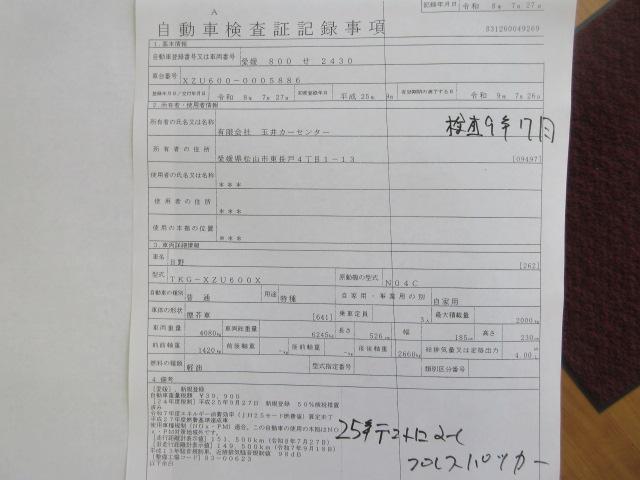 A
記録年月日 令和 8年 7月27日
自動車検査証記録事項
831260049269
1.基本情報
自動車登録番号又は車両番号 愛媛 800 せ 2430
車台番号 XZU600-0005886
登録年月日/交付年月日 令和 8年 7月27日 初度登録年月 平成 25年 9月 有効期間の満了する日 令和 9年 7月26日
2.所有者・使用者情報
所有者の氏名又は名称 有限会社 玉井カーセンター
検査9年7月
所有者の住所 愛媛県松山市東長戸4丁目1-13 [09497]
使用者の氏名又は名称 ***
使用者の住所 ***
使用の本拠の位置 ***
3.車両詳細情報
車名 日野 [262]
型式 TKG-XZU600X 原動機の型式 N04C
自動車の種別 普通 用途 特種 自家用・事業用の別 自家用
車体の形状 塵芥車 [641] 乗車定員 3人 最大積載量 2000kg
車両重量 4080kg 車両総重量 6245kg 長さ 526cm 幅 185cm 高さ 230cm
前前軸重 1420kg 前後軸重 -kg 後前軸重 -kg 後後軸重 2660kg 総排気量又は定格出力 4.00L
燃料の種類 軽油 型式指定番号 類別区分番号
4.備考
[愛媛]，新規登録
自動車重量税額 ¥39,900
[24年度税制]平成25年9月27日 新規登録 50%減税措置
済み
令和7年度エネルギー消費効率(JH25モード燃費値)算定未了
平成27年度燃費基準達成車
使用車種規制(NOx・PM)適合，この自動車の使用の本拠はNO
x・PM対策地域外です。
[走行距離計表示値]151,500km(令和8年7月27日)
[旧走行距離計表示値]149,500km(令和7年9月18日)
平成13年騒音規制車，近接排気騒音規制値 98dB
[整備工場コード]83-00623
以下余白
プレスパッカー